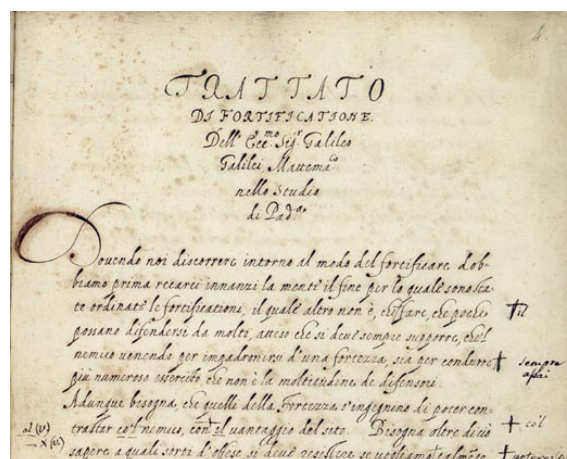 1.
TRATTATO
DI FORTIFICATIONE.
Dell' Ecc.mo Sig.r Galileo
Galilei Matema.co
nello Studio
di Pad.a
Dovendo noi discorrere intorno al modo del fortificare, dob-
biamo prima recarci innanzi la mente il fine per lo quale sono sta-
te ordinate le fortificationi, il quale altro non è, che fare, che pochi
possano difendersi da molti, atteso che si deve sempre supporre, che'l
† il
nemico venendo per impadronirsi d'una fortezza, sia per condurre †
sempre
assai
più numeroso essercito che non è la moltitudine de difensori.
Adunque bisogna, che quelle della Fortezza s'ingegnino di poter con-
trastar co'l nemico, con el vantaggio del sito. Bisogna oltre di ciò
† co'l
sapere a quali sorti d'offese si deve resistere se vogliamo